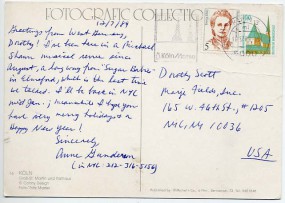 FOTOGRAFIE COLLECTION
12/7/89
Greetings from West Germany,
Dorothy! I've been here in a Michael
Shawn musical revue since
August, a long way from "Sugar Babies"
in Elmsford, which is the last time
we talked. I'll be back in NYC
mid Jan.; meanwhile I hope you
have very merry holidays & a
Happy New Year!
Sincerely,
Anne Gunderson
(in NYC - 212-316-5156)
Dorothy Scott
Marje Fields, Inc.
165 W. 46th St., #1205
NYC, NY 10036
USA
5
KÖLN